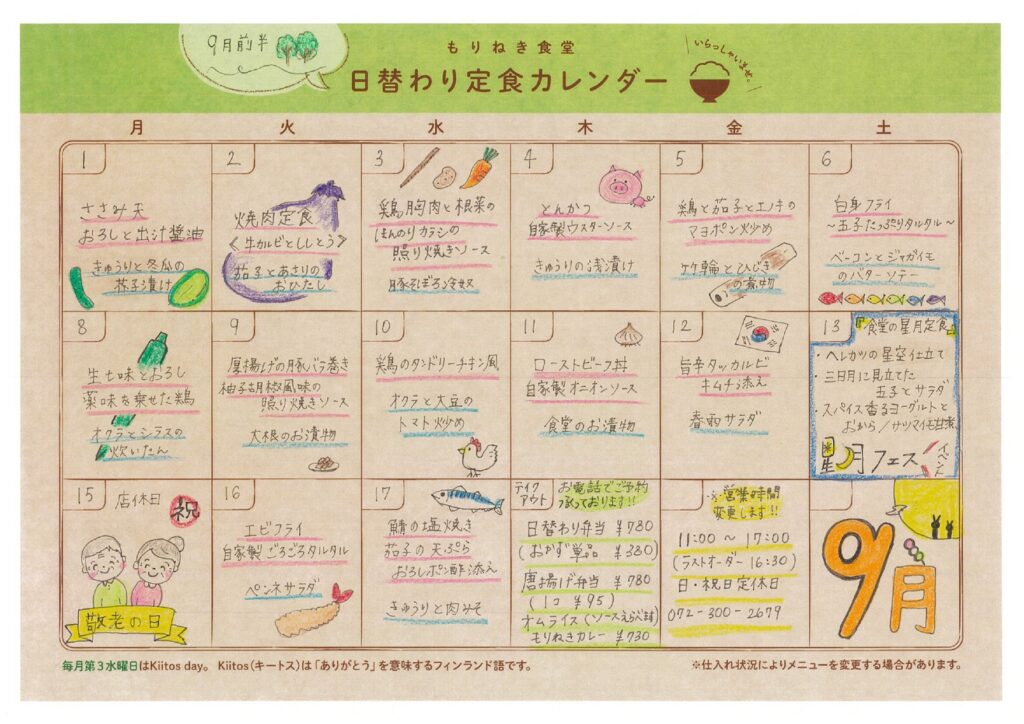 9月前半
もりねき食堂
日替わり定食カレンダー
いらっしゃいませ。
月 火 水 木 金 土
1
ささみ天
おろしと出汁醤油
きゅうりと冬瓜の
茄子漬け
2
焼肉定食
<牛カルビとししとう>
茄子とあさりの
おひたし
3
鶏胸肉と根菜の
ほんのりカラシの
照り焼きソース
豚そぼろ冷奴
4
とんかつ
自家製ウスターソース
きゅうりの浅漬け
5
鶏と茄子とエノキの
マヨポン炒め
竹輪とひじき
の煮物
6
白身フライ
~玉子たっぷりタルタル~
ベーコンとジャガイモ
のバターソテー
8
生七味とおろし
薬味を乗せた鶏
オクラとシラスの
炊いたん
9
厚揚げの豚バラ巻き
柚子胡椒風味の
照り焼きソース
大根のお漬物
10
鶏のタンドリーチキン風
オクラと大豆の
トマト炒め
11
ローストビーフ丼
自家製オニオンソース
食堂のお漬物
12
旨辛タッカルビ
キムチ添え
春雨サラダ
13
食堂の星月定食
・ヘレカツの星空仕立て
・三日月に見立てた
玉子とサラダ
・スパイス香るヨーグルトと
おから/サツマイモ甘煮
星月フェス
イベント
15
店休日
祝
敬老の日
16
エビフライ
自家製ごろごろタルタル
ペンネサラダ
17
鯖の塩焼き
茄子の天ぷら
おろしポン酢添え
きゅうりと肉みそ
テイク
アウト
お電話でご予約
承っております!!
日替わり弁当 ¥780
(おかず単品 ¥380)
唐揚げ弁当 ¥780
(1コ ¥95)
オムライス(ソースえらべます)
もりねきカレー ¥730
※営業時間
変更します!!
11:00 ~ 17:00
(ラストオーダー 16:30)
日・祝日定休日
072-300-2679
9月
毎月第3水曜日はKiitos day。 Kiitos(キートス)は「ありがとう」を意味するフィンランド語です。
※仕入れ状況によりメニューを変更する場合があります。